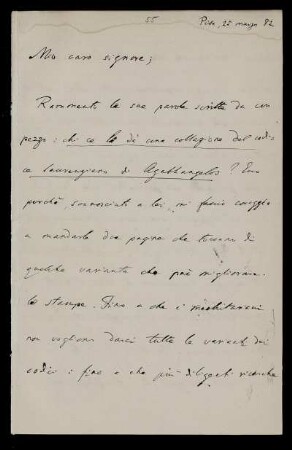 55 Pisa, 25 marzo 82
Mio caro signore,
Rammento le sue parole scritte da un
pezzo: chi ce la dà una collezione del codi-
ce laurenziano di Agathangelos? Ecco
perchè, sconosciuto a lei, mi faccio coraggio
a mandarle due pagine che toccano di
qualche variante che può migliorare
la stampa. Fino a che i mechitaristi
non vogliono darci tutte le varianti dei
codici: fino a che più diligenti ricerche